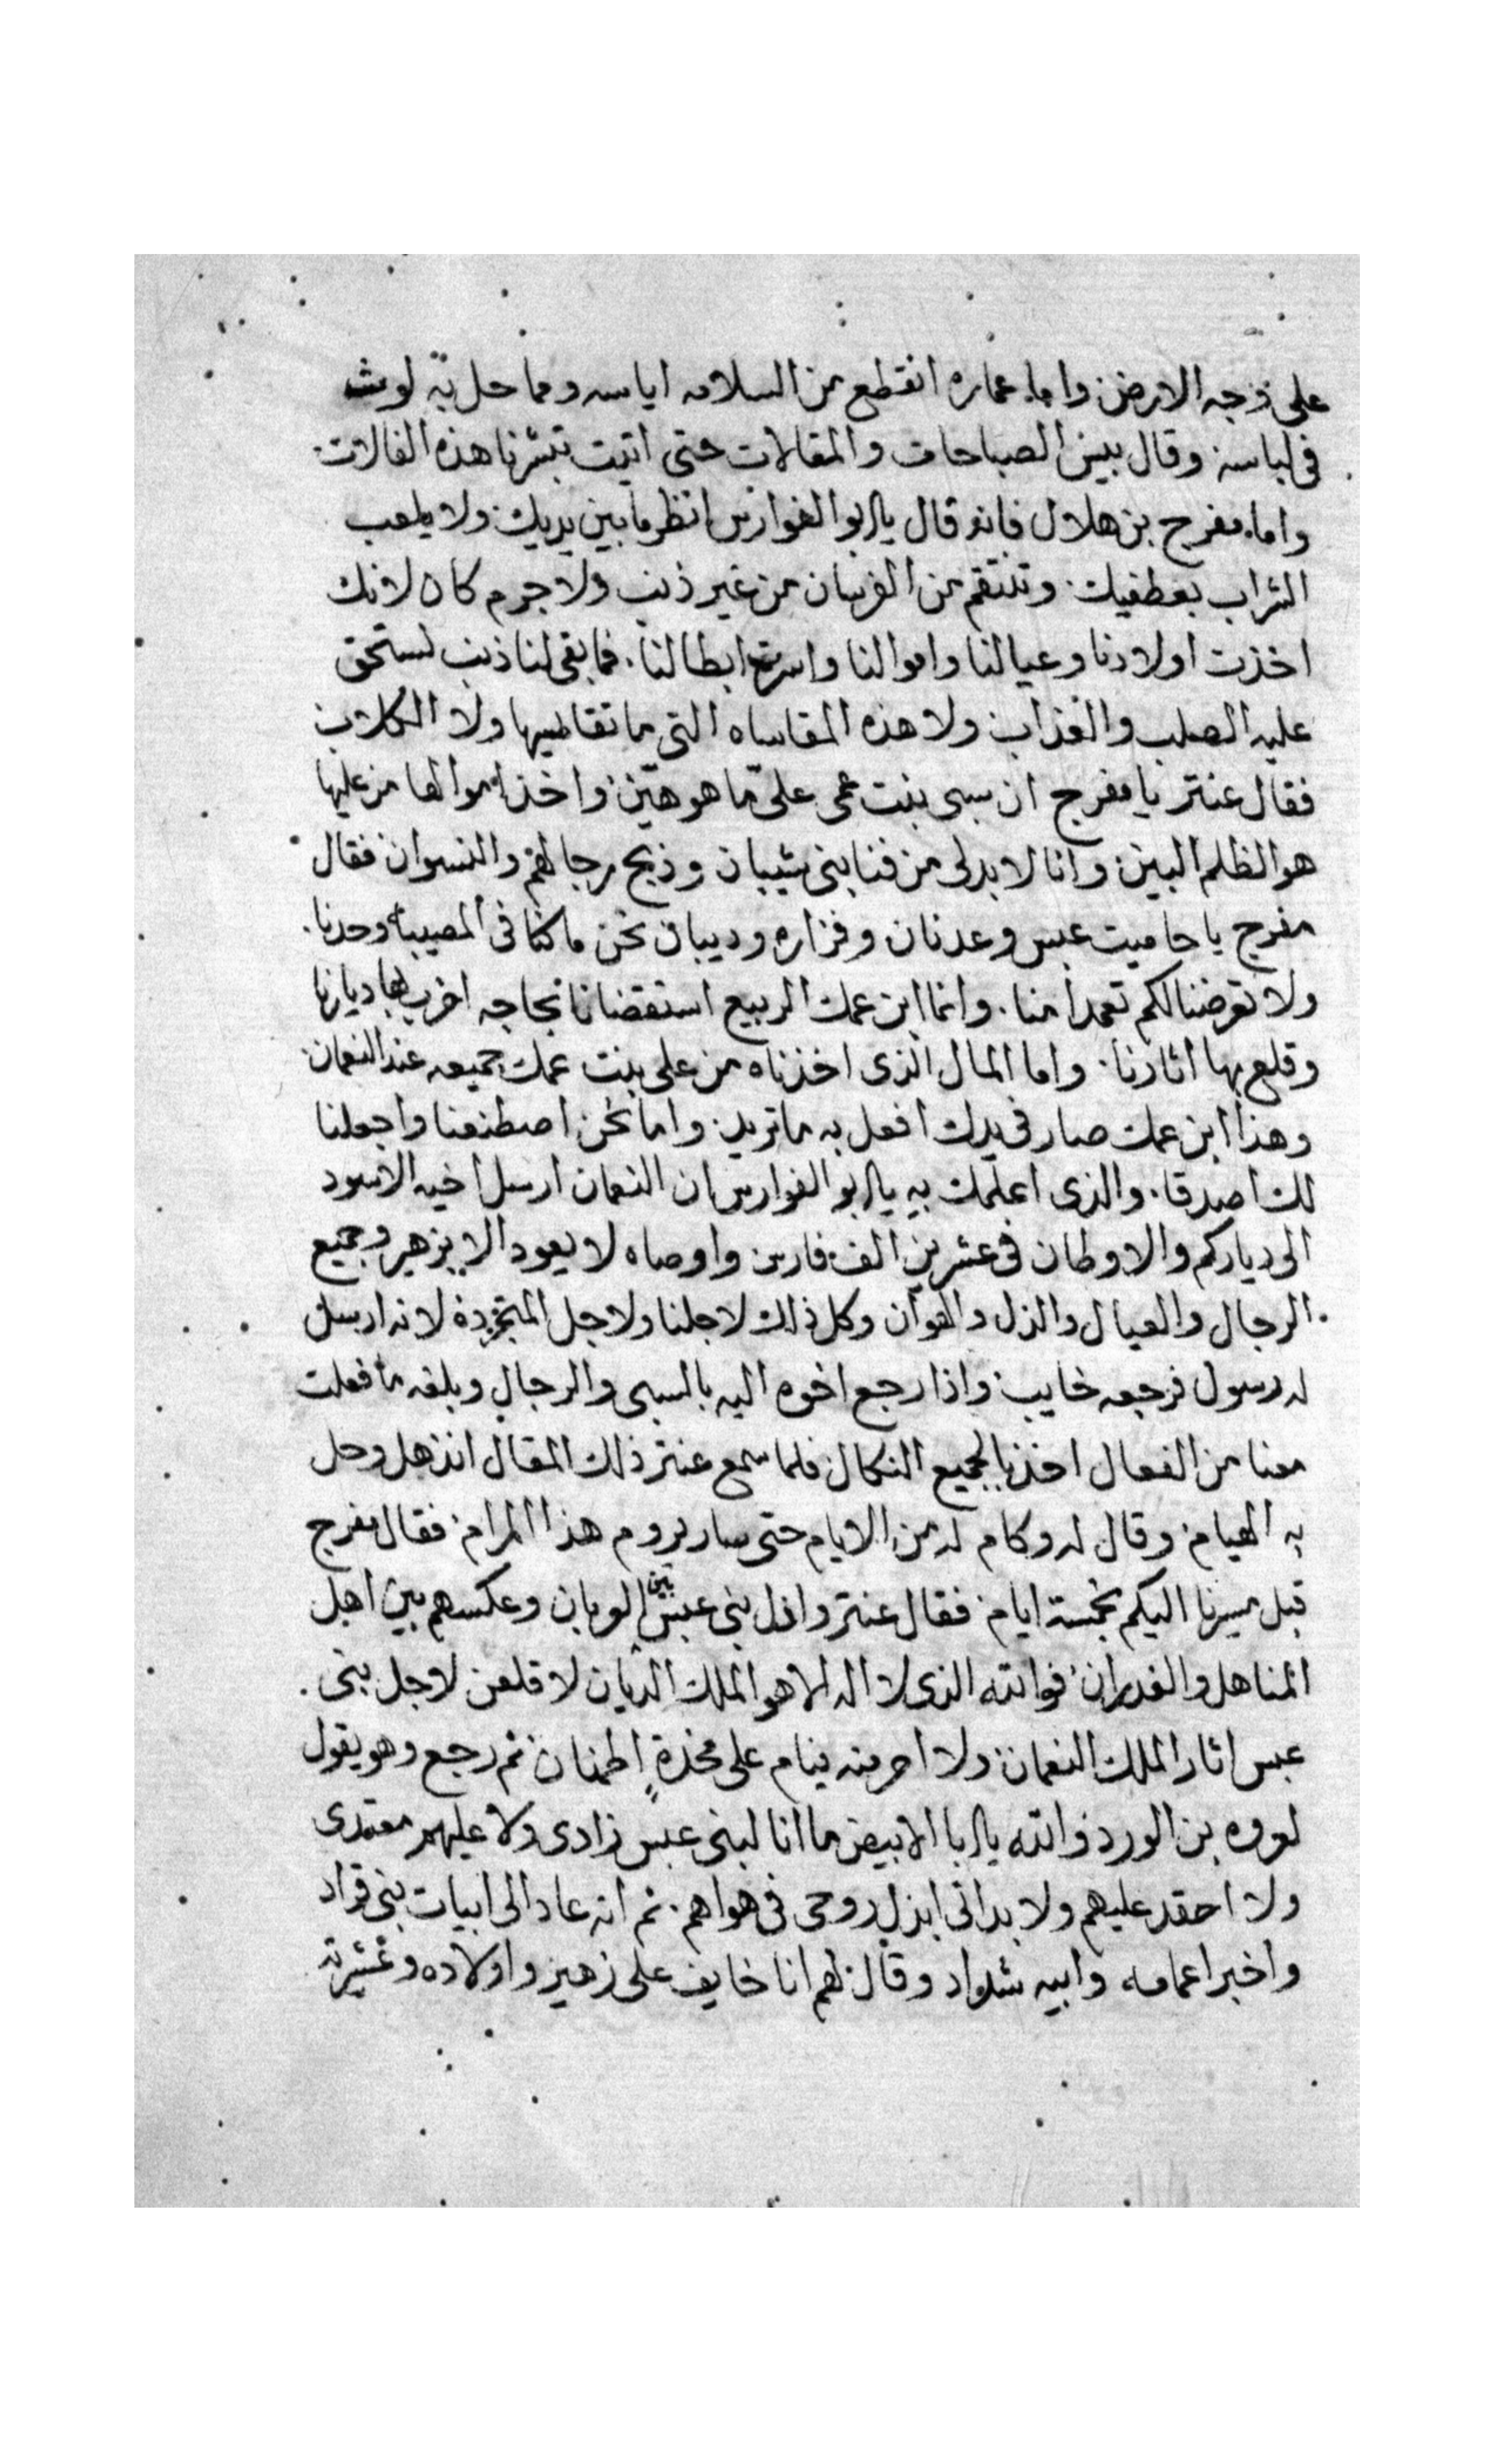 على وجه الارض واما عماره انقطع من السلامه اياسه ومما حل به لوث
فى لباسه وقال بيس الصباحات والمقالات حتى اتيت تبشرنا هذه الفالات
واما مفرج بن هلال فانه قال يابو الفوارس انظر ما بين يديك ولا يلعب
الشراب بعطفيك وتنتقم من الفرسان من غير ذنب ولا جرم كان لانك
اخذت اولادنا وعيالنا واموالنا واسرت ابطالنا فما بقى لنا ذنب نستحق
عليه الصلب والعذاب ولا هذه المقاساه التى ما تقاسيها ولا الكلاب
فقال عنتر يا مفرج ان سبى بنت عمى على ما هو هين واخذ اموالها من عليها
هو الظلم البين وانا لا بد لى من فنا بنى شيبان وذبح رجالهم والنسوان فقال
مفرج يا حاميت عبس وعدنان وفزاره وديبان نحن ما كنا فى المصيبه وحدنا
ولا تعرضنا لكم تعمدا منا وانما ابن عمك الربيع استقضانا بحاجه اخرب بها ديارنا
وقلع بها اثارنا واما المال الذى اخذناه من على بنت عمك جميعه عند النعمان
وهذا ابن عمك صار فى يدك افعل به ما تريد واما نحن اصطنعنا واجعلنا
لك اصدقا والذى اعلمك به يابو الفوارس ان النعمان ارسل اخيه الاسود
الى دياركم والاوطان فى عشرين الف فارس واوصاه لا يعود الا بزهير وجميع
الرجال والعيال والذل والهوان وكل ذلك لاجلنا ولاجل المتجردة لانه ارسل
له رسول فرجعه خايب واذا رجع اخوه اليه بالسبى والرجال وبلغه ما فعلت
معنا من الفعال اخذنا لجميع النكال فلما سمع عنتر ذلك المقال انذهل وحل
به الهيام وقال له وكام له من الايام حتى سار يروم هذا المرام فقال مفرج
قبل مسيرنا اليكم بخمسة ايام فقال عنتر واذل بنى عبس بين العربان وعكسهم بين اهل
المناهل والغدران فوالله الذى لا اله الا هو الملك الديان لا قلعن لاجل بنى
عبس اثار الملك النعمان ولا احرمنه ينام على مخدة اطمنان ثم رجع وهو يقول
لعروه بن الورد والله يابا الابيض ما انا لبنى عبس زادى ولا عليهم معتدى
ولا احقد عليهم ولا بد انى ابذل روحى فى هواهم ثم انه عاد الى ابيات بنى قراد
واخبر اعمامه وابيه شداد وقال لهم انا خايف على زهير واولاده وعشيرته